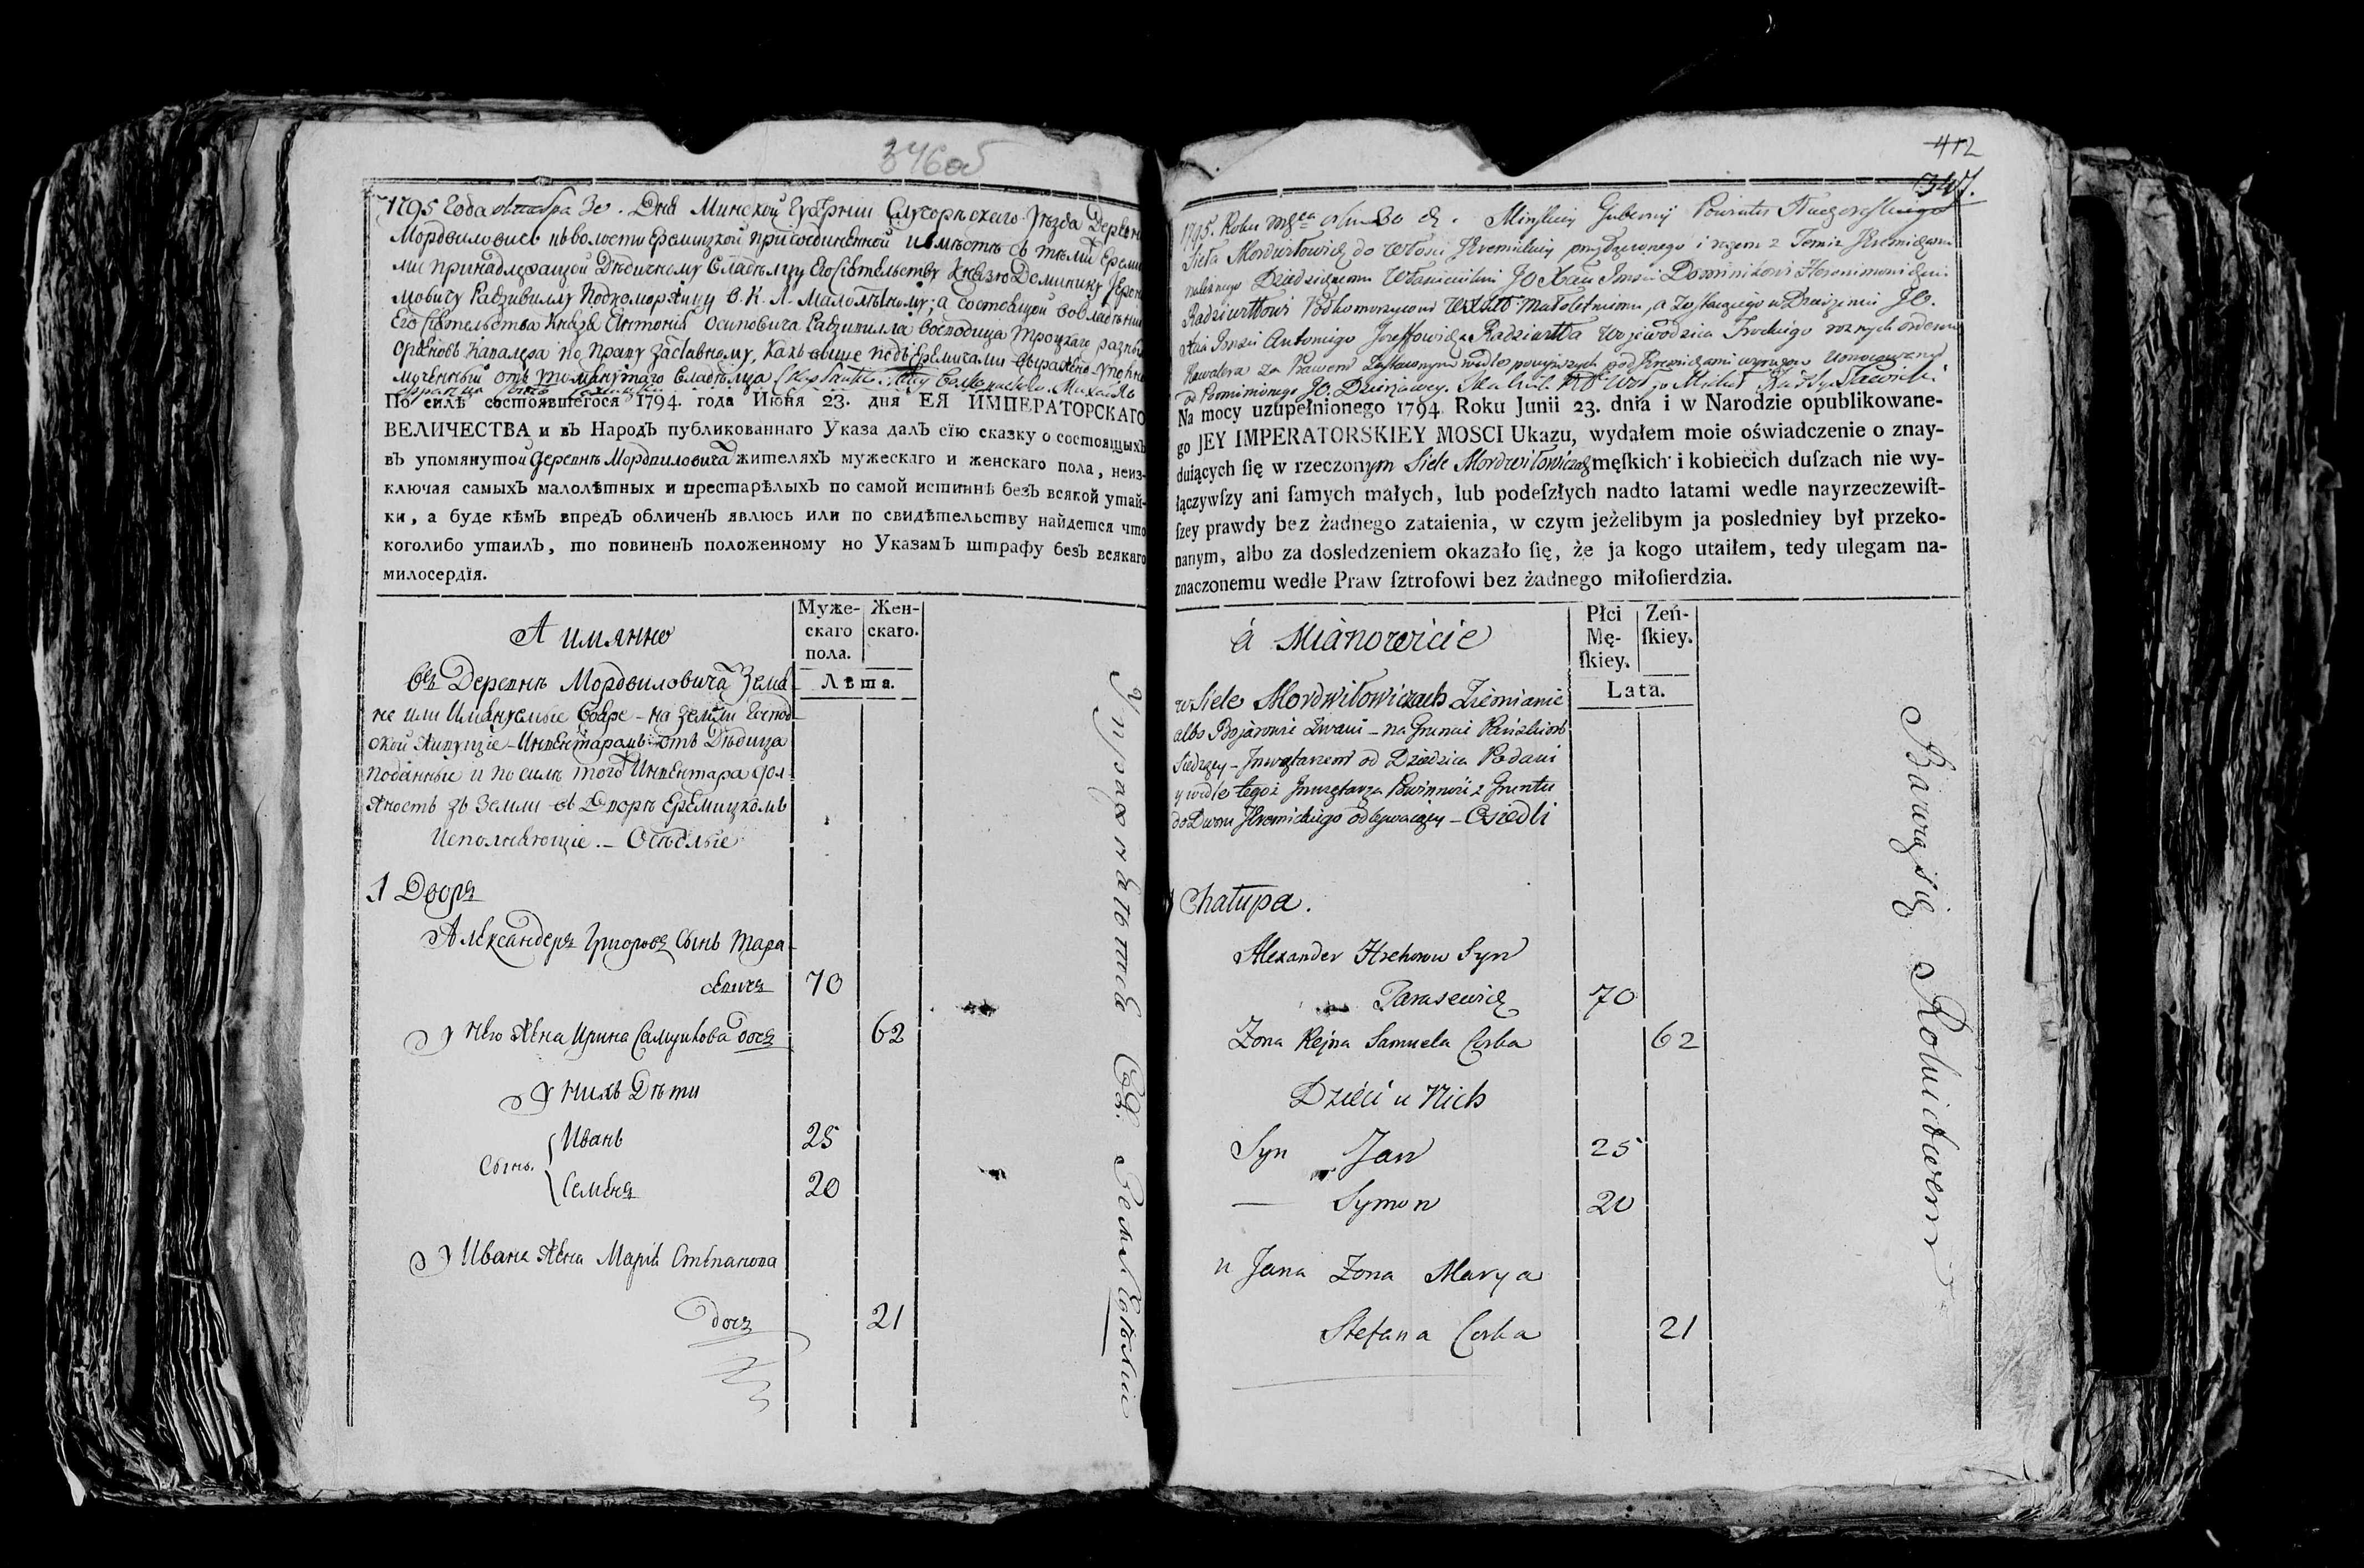 346об
1795 Года октабра 30. Дня Минской Губернии Слуцорѣцкаго Уѣзда Деревни
Мордвиловичь въ волости Еремицкой присоединенной и вмѣстѣ съ тѣми Ереми
ми принадлежащой Дѣдичному Владѣльцу Его Сіятельству Князю Доминику Іерон
мовичу Радзивиллу Подкоморжицу В. К. Л. Малолѣтному; а состоящой во владѣнии
Его Сіятельства Князя Антонія Осиповича Радзивилла Воеводица Троцкаго разных
Орденовъ Кавалера по праву заставному, какъ выше подъ Еремичами выражено уполно
моченный отъ упомянутаго Владѣльца
По силѣ состоявшегося 1794. года Июня 23. дня ЕЯ ИМПЕРАТОРСКАГО
ВЕЛИЧЕСТВА и въ Народъ публикованнаго Указа далъ сїю сказку о состоящыхъ
въ упомянутой Деревнѣ Мордвиловича жителяхъ мужескаго и женскаго пола, неиз-
ключая самыхъ малолѣтныхъ и престарѣлыхъ по самой истиннѣ безъ всякой утай-
ки, а буде кѣмъ впредъ обличенъ явлюсь или по свидѣтельству найдется что
коголибо утаилъ, то повиненъ положенному по Указамъ штрафу безъ всякаго
милосердїя.
А имянно
Муже-
скаго
пола.
Жен-
скаго.
Лѣта.
Въ Деревнѣ Мордвиловича Земя-
не или Имянуемые Бояре – на Земли Господ-
ской живущіе – Инвентаромъ отъ Дѣдица
поданные и по силѣ того Инвентара дол-
жность зъ Земли въ Дворѣ Еремицкомъ
Исполняющіе. – Осѣдлые
1 Дворъ
Александеръ Григоровъ Сынъ Тара-
севичъ 70
У Него Жена Ирина Самуилова дочь 62
У Нихъ Дѣти
Сынъ. Иванъ 25
Семенъ 20
У Ивана Жена Марія Степанова
дочь 21
412
347.
1795. Roku 30 d. Minskiey Gubernij Powiatu
Sioła Mordwiłowicz do Włości Jeremickiey przyłączonego i razem z Temiż Jeremiczami
należnego Dziedzicznemu Właścicielowi JO Xciu Jmci Dominikowi Hieronimowiczowi
Radziwiłłowi Podkomorzycowi małoletniemu, a zostaiącego w Dzierżeniu JO.
Xcia Jmci Antoniego Jozeffowicza Radziwiłła Woiewodzica Trockiego roznych orderow
Kawalera za Prawem Zastawnym wedle powyższych pod Jeremiczami wyrazow Umocowany
od Pomienionego JO. Dzierżawcy.
Na mocy uzupełnionego 1794. Roku Junii 23. dnia i w Narodzie opublikowane-
go JEY IMPERATORSKIEY MOSCI Ukazu, wydałem moie oświadczenie o znay-
duiących ſię w rzeczonym Siele Mordwiłowiczach męſkich i kobiecich duſzach nie wy-
łączywſzy ani ſamych małych, lub podeſzłych nadto latami wedle nayrzeczewiſt-
ſzey prawdy bez żadnego zataienia, w czym jeżelibym ja posledniey był przeko-
nanym, albo za dosledzeniem okazało ſię, że ja kogo utaiłem, tedy ulegam na-
znaczonemu wedle Praw ſztrofowi bez żadnego miłoſierdzia.
à Mianowicie
Płci
Mę-
ſkiey.
Zeń-
ſkiey.
Lata.
w Siele Mordwiłowiczach Ziemianie
albo Bojarowie Zwani – na Gruncie Pańskim
Siedzący – Inwentarzem od Dziedzica Podani
y wedle tegoż Inwentarza Powinność z Gruntu
do Dworu Jeremickiego odbywaiący – Osiedli
1 Chałupa.
Alexander Hrehorow Syn
Tarasewicz 70
Zona Rejna Samuela Corka 62
Dzieci u Nich
Syn Jan 25
— Symon 20
u Jana Zona Marya
Stefana Corka 21
Bawią się Rolnictwem